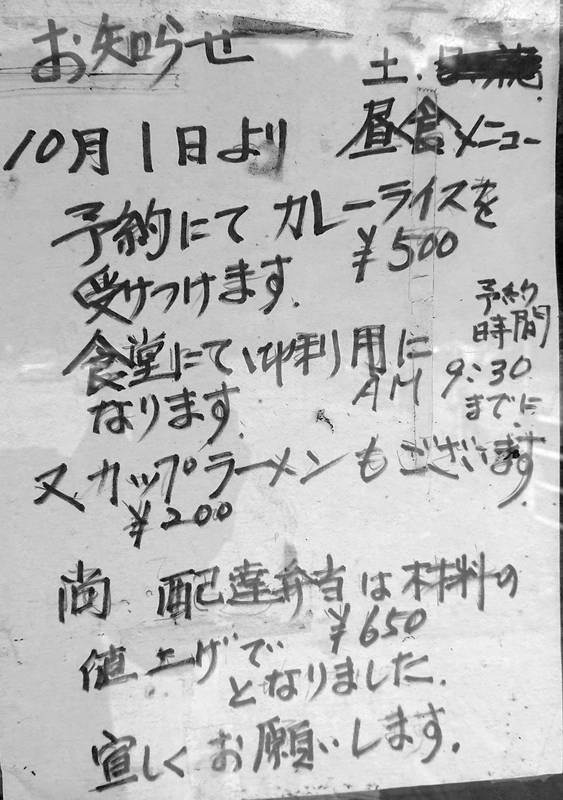 お知らせ
土.
10月1日より 昼食メニュー
予約にて カレーライスを
¥500
受けつけます.
予約
時間
食堂にて御利用に
AM 9:30
までに
なります.
又 カップラーメンもございます
¥200
尚 配達弁当は材料の
¥650
値上げで
となりました.
宜しくお願いします.